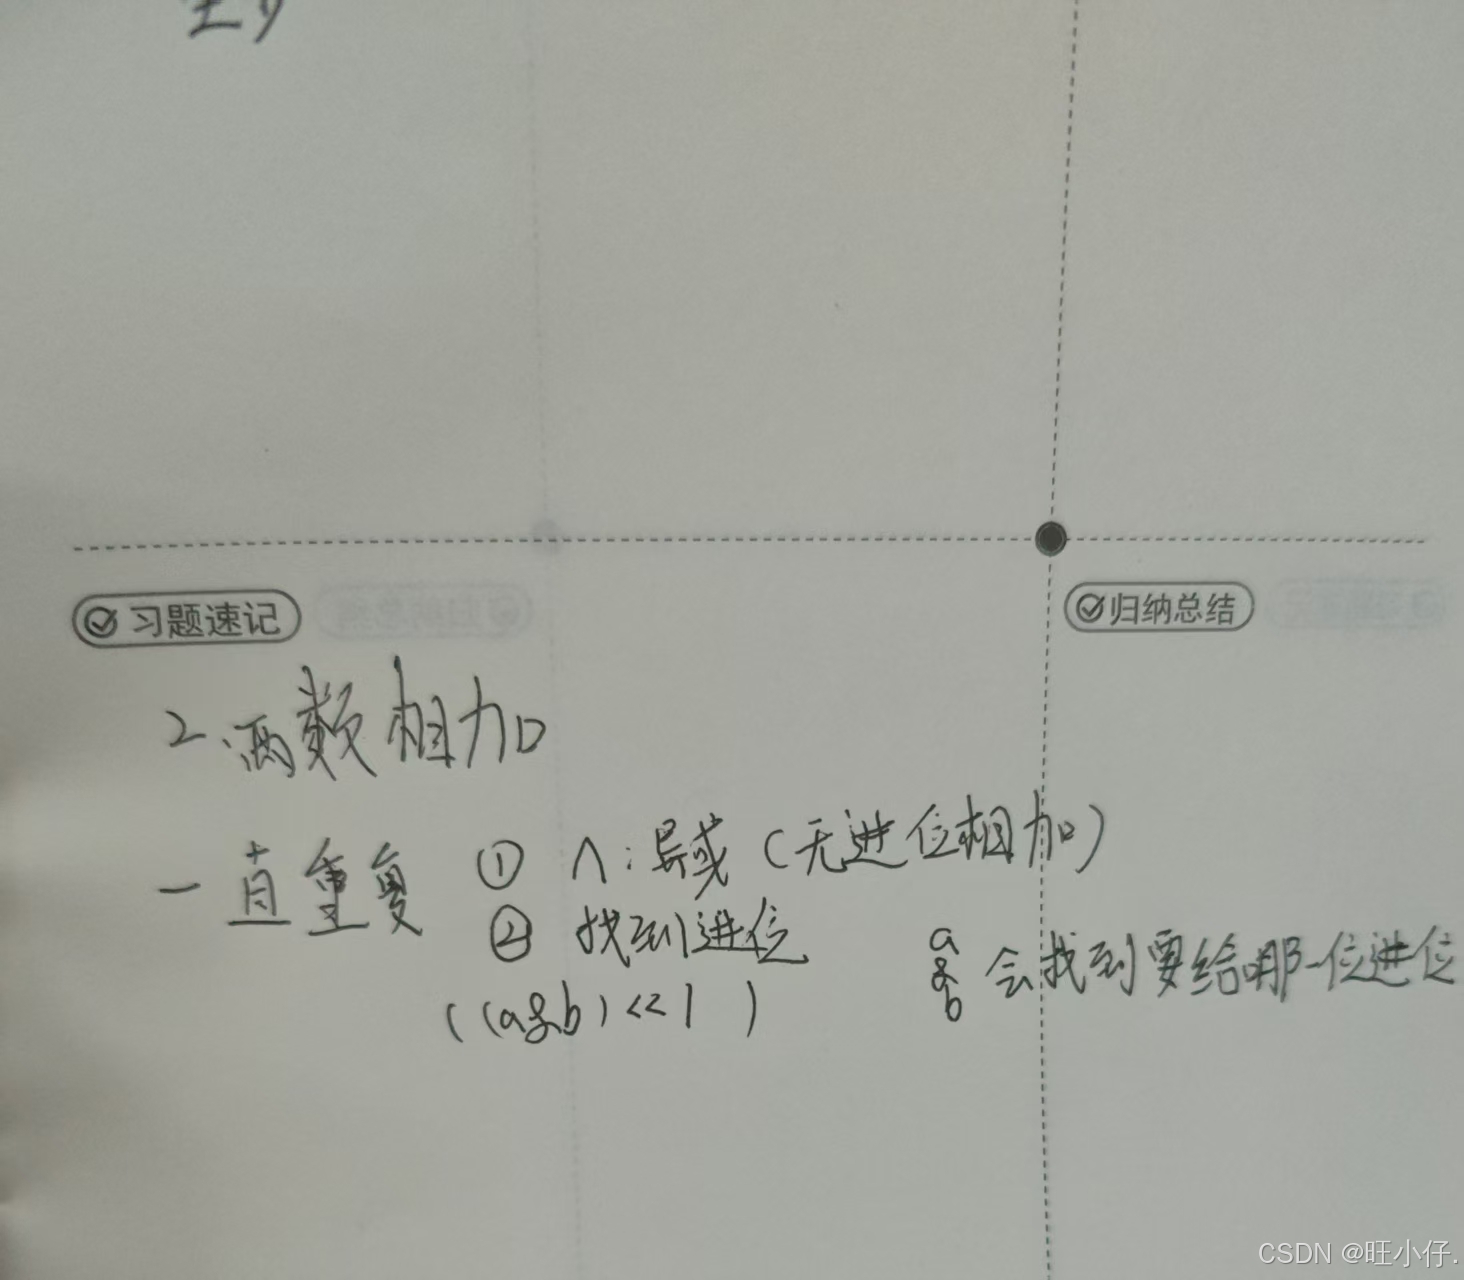 习题速记
归纳总结
2.两数相加
一直重复 ① ∧:异或(无进位相加)
② 找到进位
a&b 会找到要给哪一位进位
((a&b)<<1 )
CSDN @旺小仔.